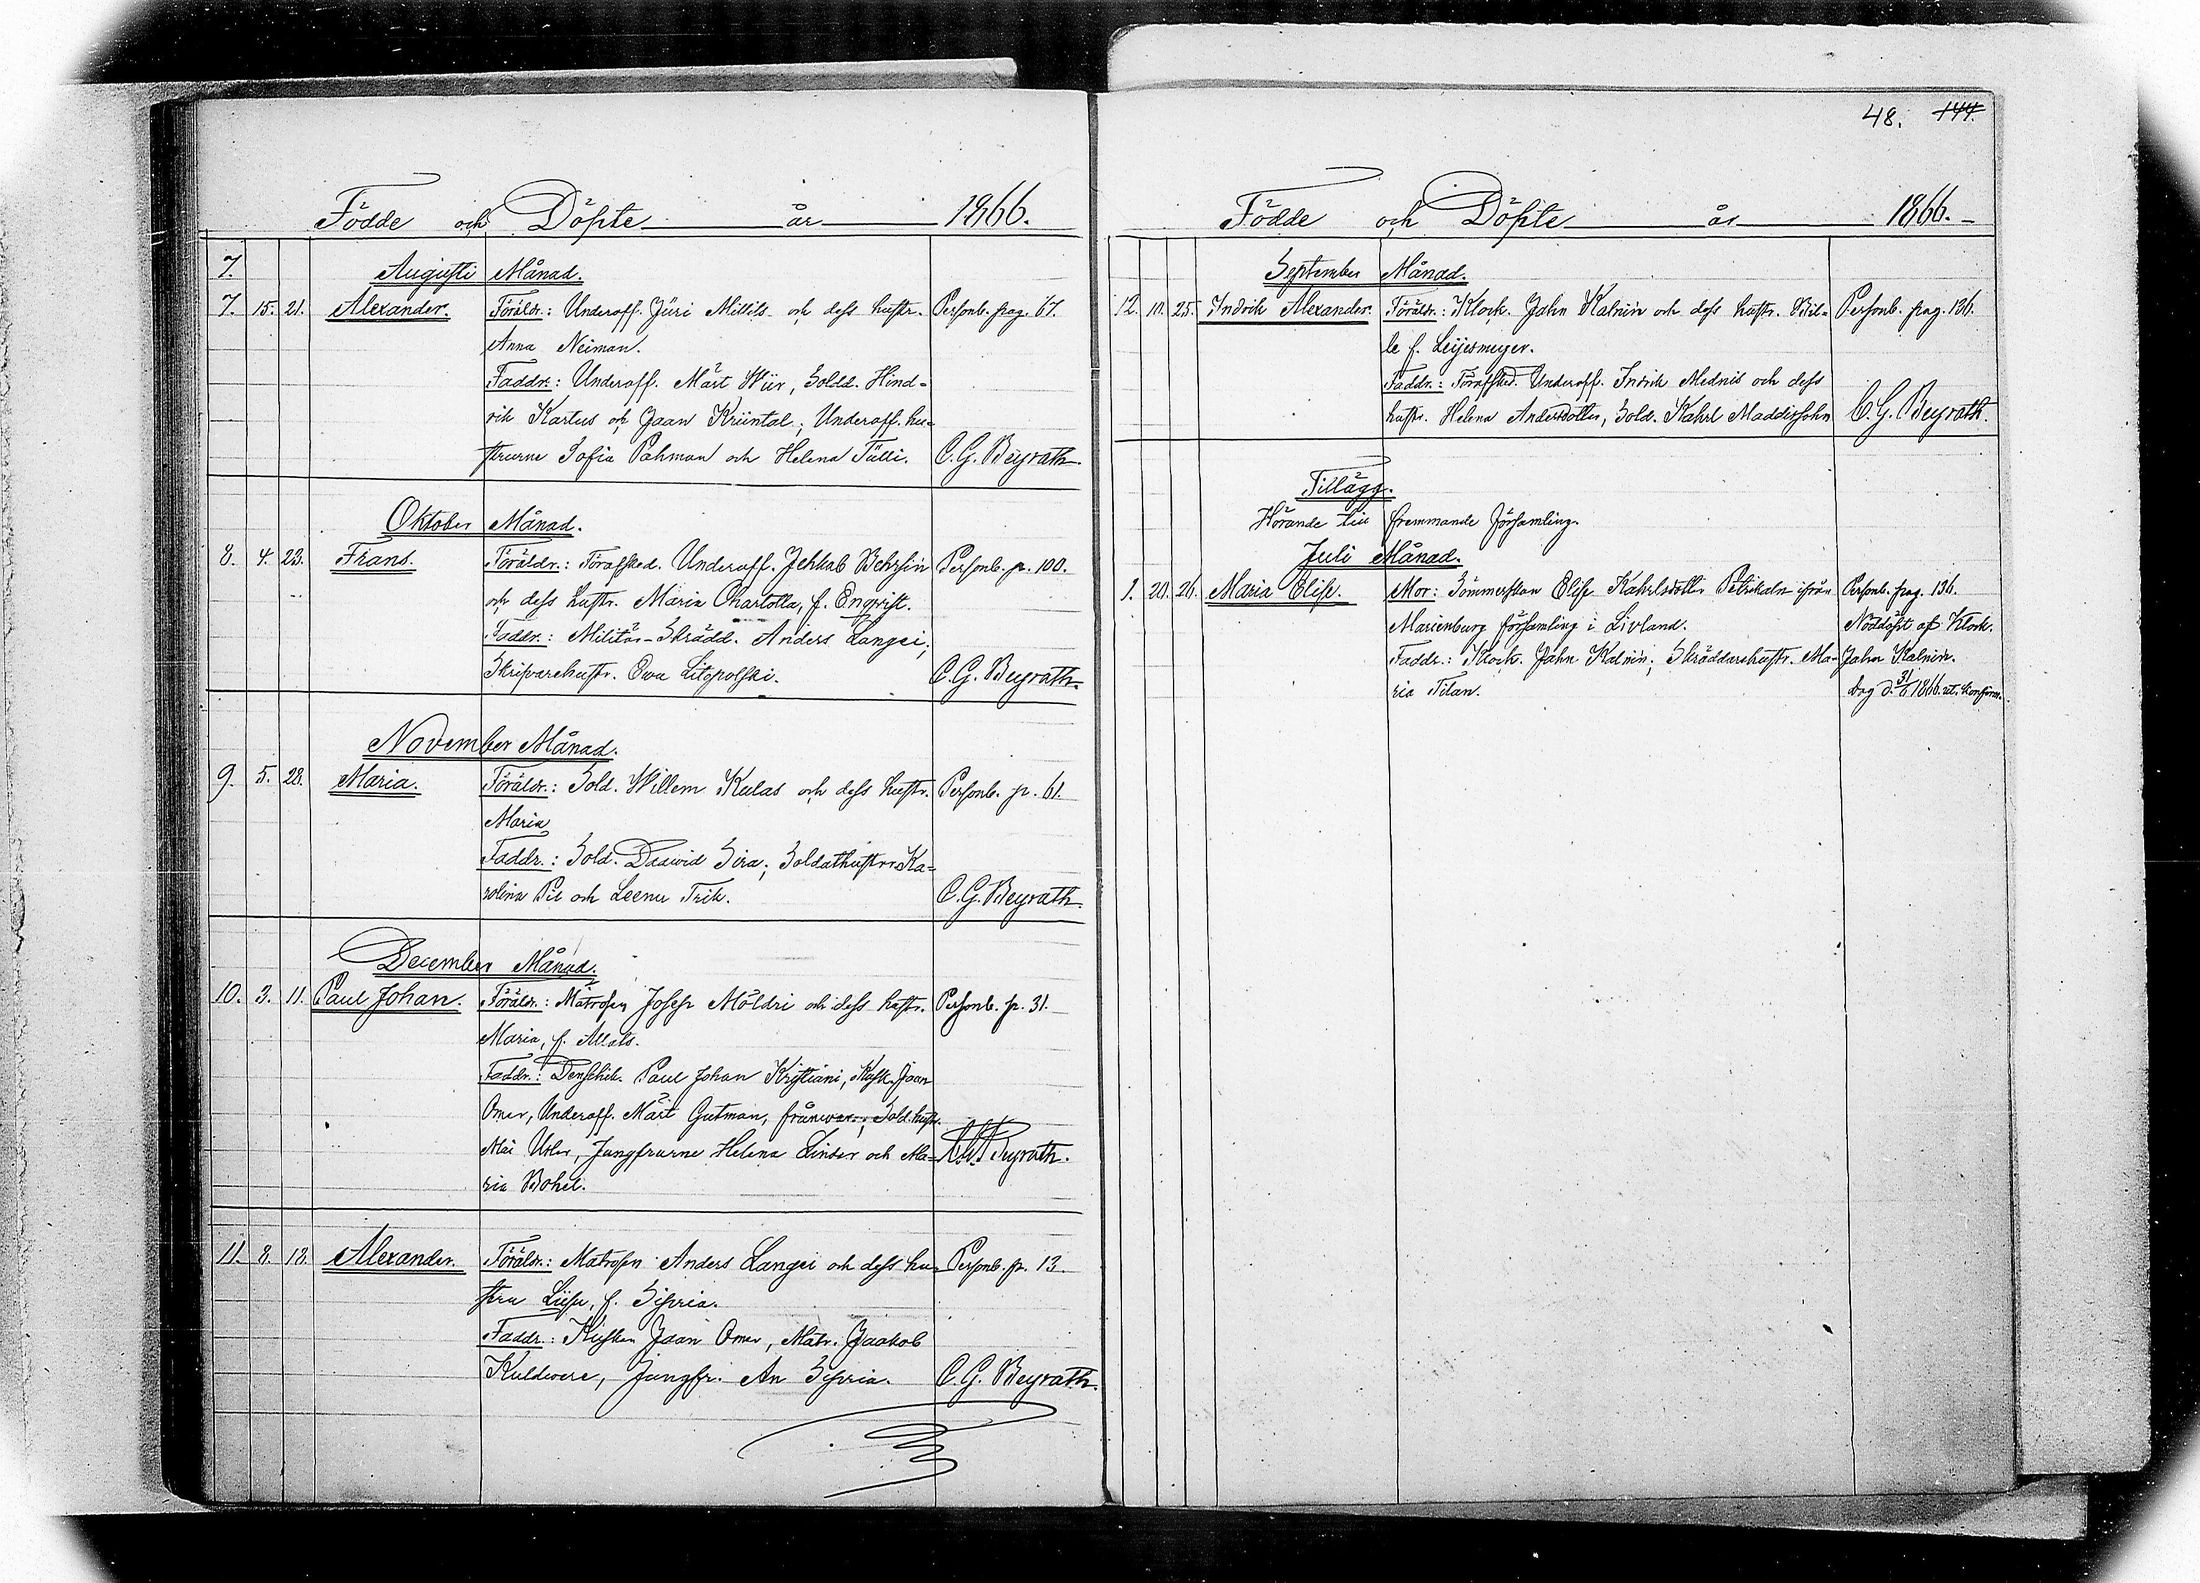 Födde och Döpte år 1866.
7. Augusti Månad.
7. 15. 21. Alexander. Föräldr.: Underoff. Jüri Millils och dess hustr. Personb. pag. 67.
Anna Neiman.
Faddr.: Underoff. Märt Wiir, Sold. Hind-
rik Kartus och Jaan Krüntal; Underoff. hu-
strurne Sofia Pahman och Helena Tülli. C. G. Beyrath.
Oktober Månad.
8. 4. 23. Frans. Föräldr.: Förafsked. Underoff. Jehkab Behrsin Personb. p. 100.
och dess hustr. Maria Charlotta, f. Enqvist.
Faddr.: Militär-Skrädd. Anders Langei;
Skrifvarehustr. Ewa Litopolski. C. G. Beyrath.
November Månad.
9. 5. 28. Maria. Föräldr.: Sold. Willem Kulas och dess hustr. Personb. p. 61.
Maria
Faddr.: Sold. Daawid Sira; Soldathustr. Ka-
rolina Pil och Leenu Trik. C. G. Beyrath.
December Månad.
10. 3. 11. Paul Johan. Föräldr.: Matrosen Josep Möldri och dess hustr. Personb. p. 31.
Maria, f. Allats.
Faddr.: Denschik. Paul Johan Kristiani, Kusk. Jaan
Omer, Underoff. Märt Gutman, frånvar.; Sold. hustr.
Mai Utler, Jungfrurne Helena Linder och Ma- Beyrath.
ria Bohel.
11. 8. 18. Alexander. Föräldr.: Matrosen Anders Langei och dess hu- Personb. p. 13.
stru Liisu, f. Sipria.
Faddr.: Kusken Jaan Omer, Matr. Jaakob
Kuldwere, Jungfr. An Sipria. C. G. Beyrath.
48. 144.
Födde och Döpte år 1866.
September Månad.
12. 10. 25. Indrik Alexander. Föräldr.: Klock. Jahn Kalnin och dess hustr. Bil- Personb. pag. 136.
le f. Leijesmeyer.
Faddr.: Förafsked. Underoff. Indrik Mednis och dess
hustr. Helena Andersdotter, Sold. Kahrl Maddissohn C. G. Beyrath.
Tillägg.
Hörande till fremmande församling.
Juli Månad.
1. 20. 26. Maria Elise. Mor: Sömmerskan Elise Kahrlsdotter Petrikaln ifrån Personb. pag. 136.
Marienburg församling i Livland. Nöddöpt af Klock.
Faddr.: Klock. Jahn Kalnin; Skräddarehustr. Ma- Jahn Kalnin.
ria Tilan. 1866